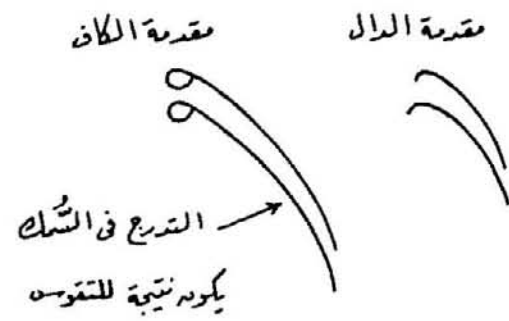 مقدمة الدال
مقدمة الكاف
التدرج فى السُّمك
يكون نتيجة للتقوس